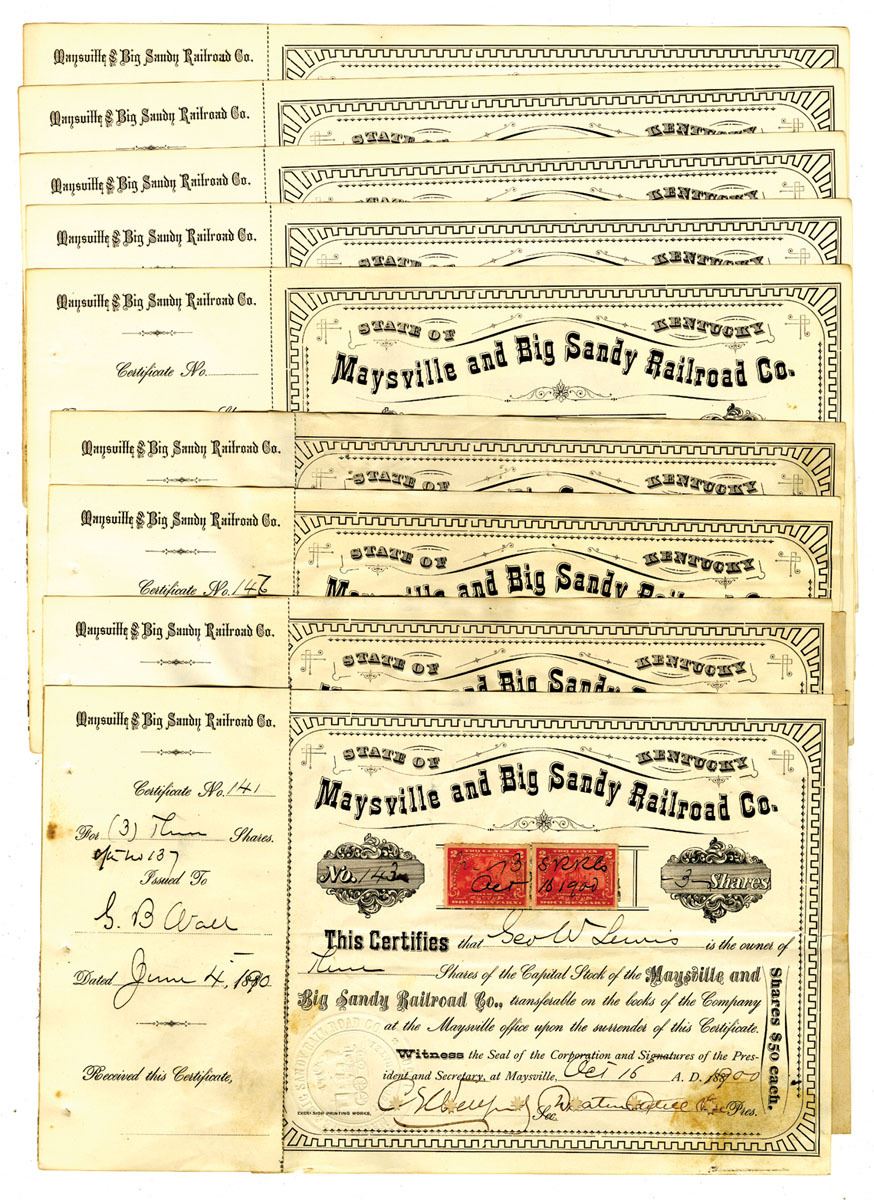 Maysville & Big Sandy Railroad Co.
Maysville & Big Sandy Railroad Co.
STATE OF KENTUCKY
Maysville & Big Sandy Railroad Co.
STATE OF KENTUCKY
Maysville & Big Sandy Railroad Co.
STATE OF KENTUCKY
Maysville & Big Sandy Railroad Co.
Certificate No.
STATE OF KENTUCKY
Maysville and Big Sandy Railroad Co.
Maysville & Big Sandy Railroad Co.
STATE OF KENTUCKY
Maysville & Big Sandy Railroad Co.
Certificate No. 146
STATE OF KENTUCKY
Maysville and Big Sandy Railroad Co.
Maysville & Big Sandy Railroad Co.
STATE OF KENTUCKY
Maysville and Big Sandy Railroad Co.
Maysville & Big Sandy Railroad Co.
Certificate No. 141
For (3) Three Shares.
No 137
Issued To
G. B Wall
Dated June 4, 1890
Received this Certificate,
STATE OF KENTUCKY
Maysville and Big Sandy Railroad Co.
No. 143
TWO CENTS TWO CENTS
3 Shares
Oct 16 1900
This Certifies that Geo W Lewis is the owner of
Three Shares of the Capital Stock of the Maysville and
Big Sandy Railroad Co., transferable on the books of the Company
at the Maysville office upon the surrender of this Certificate.
Witness the Seal of the Corporation and Signatures of the Pres-
ident and Secretary, at Maysville, Oct 16 A. D. 1900
Sec. Pres.
Shares $50 each.
EXCELSIOR PRINTING WORKS.